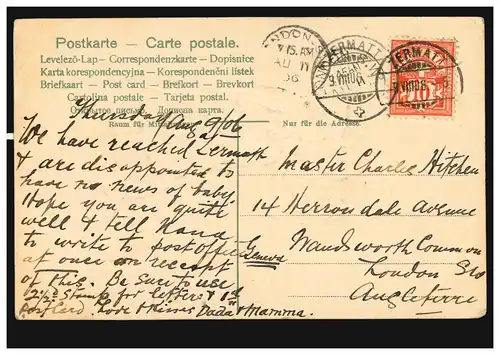 Postkarte - Carte postale.
Levelező-Lap - Correspondenzkarte - Dopisnice
Karta korespondencyjna - Korespondenční lístek
Briefkaart - Post card - Brefkort - Brevkort
Cartolina postale - Tarjeta postal.
Открытое письмо. Дописна карта.
Raum für
Nur für die Adresse.
Thursday Aug 9/06
We have reached Zermatt
& are disappointed to
have no news of baby.
Hope you are quite
well & tell Nana
to write to post office
Geneva
at once on receipt
of this. Be sure to use
2½d stamp for letters & 1d
postcard. Love & kisses Dada & Mamma.
Master Charles Hitchen
14 Herrondale Avenue
Wandsworth Common
London SW
Angleterre
LONDON
7 15. AM
AU 11
06
ZERMATT
9 VIII 06
ZERMATT
9 VIII 06
10